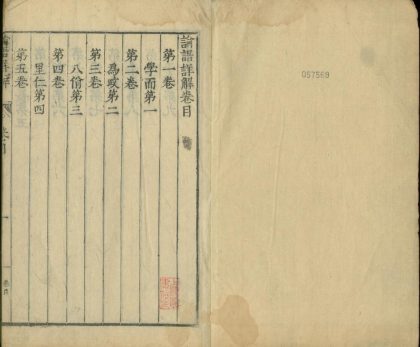 論語詳解卷目
第一卷
學而第一
第二卷
爲政第二
第三卷
八佾第三
第四卷
里仁第四
第五卷
057569